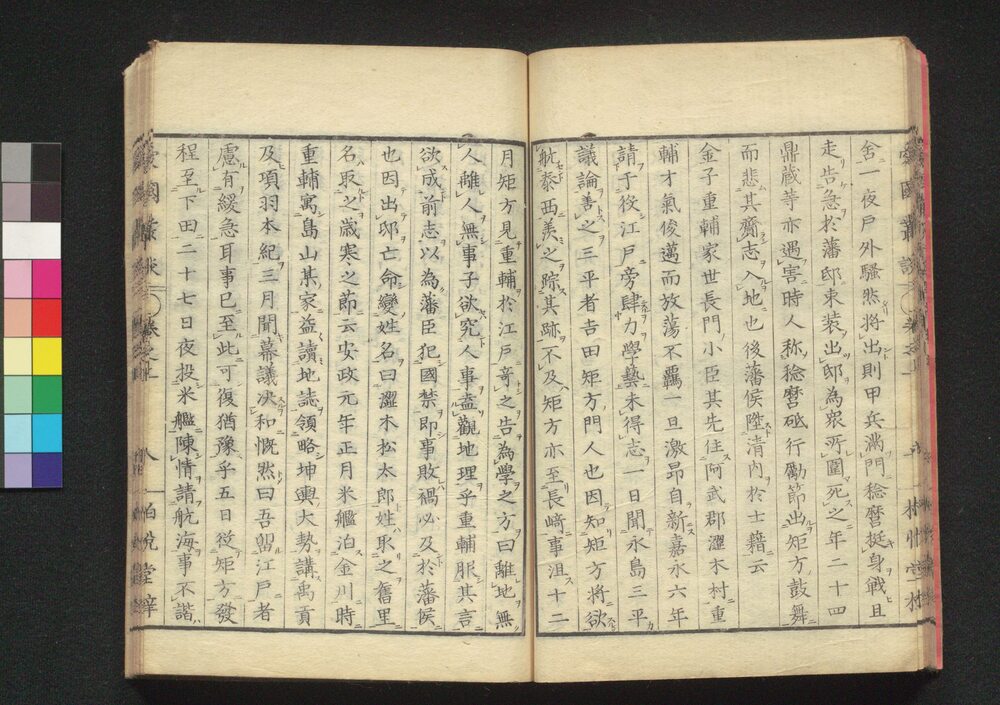 舍一夜戸外騷然將出則甲兵滿門稔麿挺身戰且
走告急於藩邸束裝出邸為衆所圍死之年二十四
鼎藏等亦遇害時人稱稔麿砥行勵節出矩方鼓舞
而悲其齎志入地也後藩侯陞清内於士籍云
金子重輔家世長門小臣其先住阿武郡澀木村重
輔才氣俊邁而放蕩不羈一旦激昂自新嘉永六年
請于役江戸旁肆力學藝未得志一日聞永島三平
議論善之三平者吉田矩方門人也因知矩方將欲
航泰西羨之踪其跡不及矩方亦至長﨑事沮十二
月矩方見重輔於江戸竒之告為學之方曰離地無
人離人無事子欲究人事盍觀地理乎重輔服其言
欲成前志以為藩臣犯國禁即事敗禍必及於藩侯
也因出邸亡命變姓名曰澀木松太郎姓取之舊里
名取之歲寒之節云安政元年正月米艦泊金川時
重輔寓鳥山某家益讀地誌領略坤輿大勢講禹貢
及項羽本紀三月聞幕議决和慨然曰吾留江戸者
慮有緩急耳事已至此可復猶豫乎五日從矩方發
程至下田二十七日夜投米艦陳情請航海事不諧